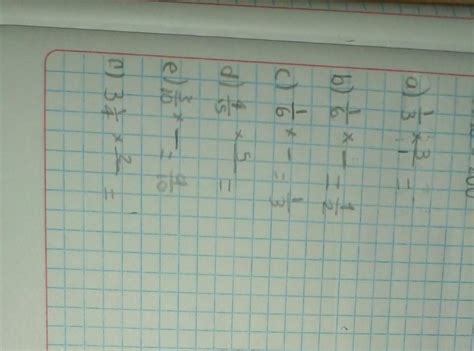 a) 1/3 × 3/1 =
b) 1/6 × — = 1/2
c) 1/6 × — = 1/3
d) 4/15 × 5 =
e) 3/10 × — = 9/10
3 1/4 × 2 =